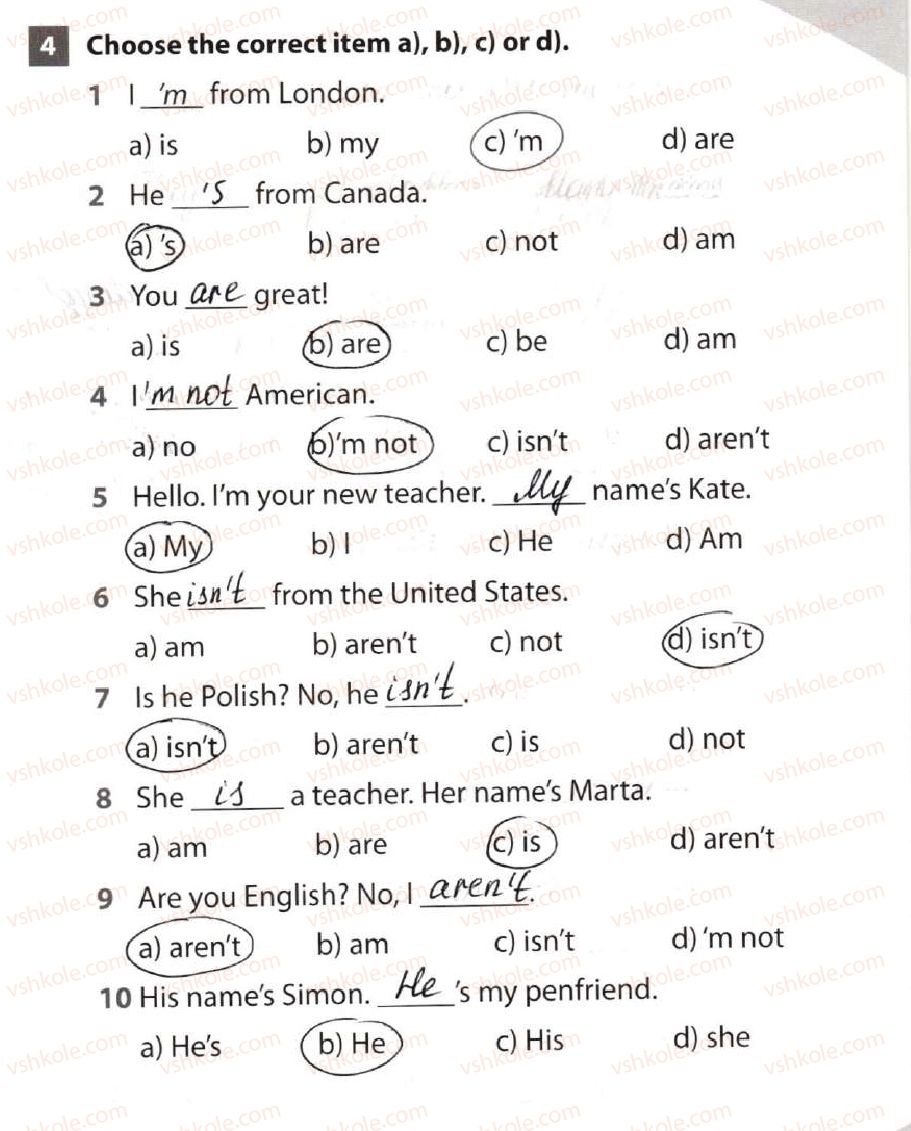 4 Choose the correct item a), b), c) or d).
1 I 'm from London.
a) is b) my c) 'm d) are
2 He 's from Canada.
a) 's b) are c) not d) am
3 You are great!
a) is b) are c) be d) am
4 I 'm not American.
a) no b) 'm not c) isn't d) aren't
5 Hello. I'm your new teacher. My name's Kate.
a) My b) I c) He d) Am
6 She isn't from the United States.
a) am b) aren't c) not d) isn't
7 Is he Polish? No, he isn't.
a) isn't b) aren't c) is d) not
8 She is a teacher. Her name's Marta.
a) am b) are c) is d) aren't
9 Are you English? No, I aren't.
a) aren't b) am c) isn't d) 'm not
10 His name's Simon. He 's my penfriend.
a) He's b) He c) His d) she
vshkole.com